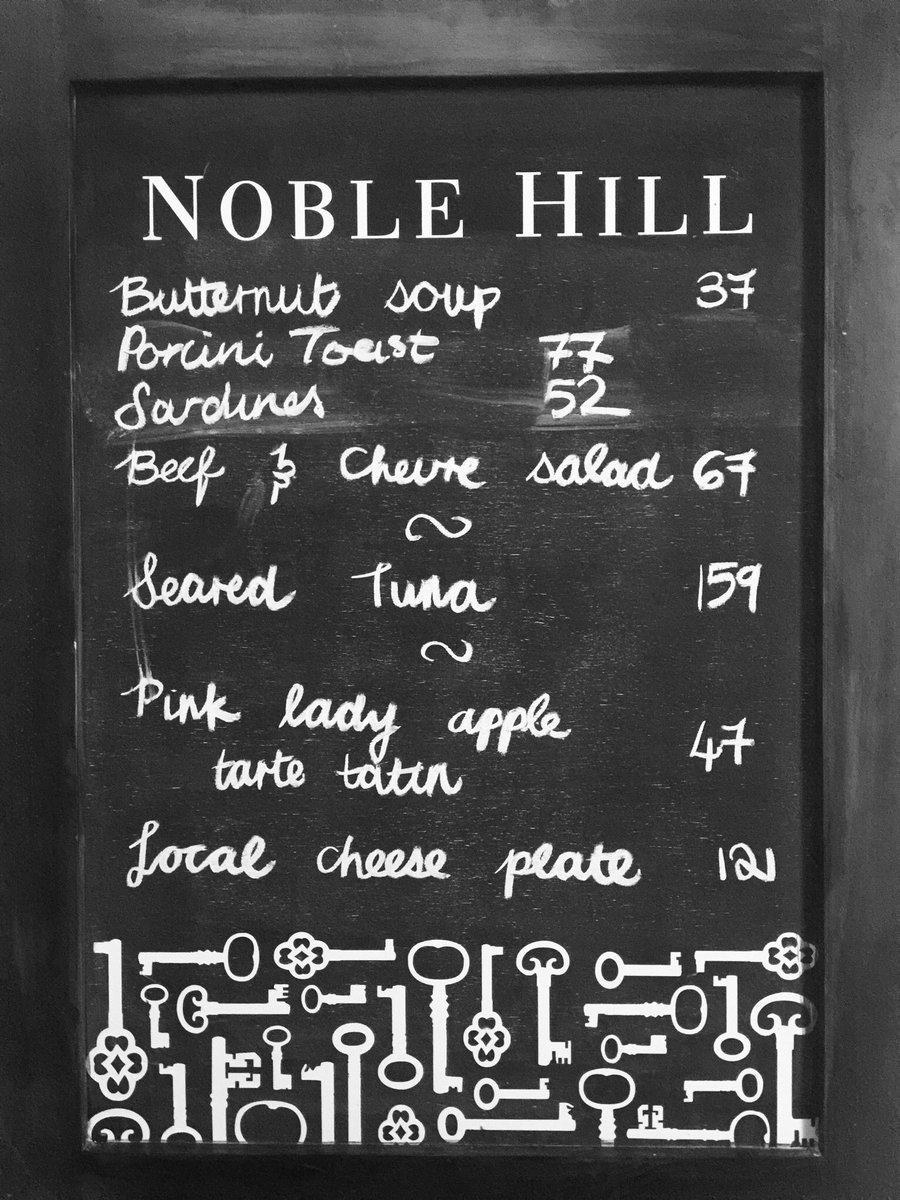 NOBLE HILL
Butternut soup 37
Porcini Toast 77
Sardines 52
Beef & Chevre salad 67
~
Seared Tuna 159
~
Pink lady apple
tarte tatin 47
Local cheese plate 121